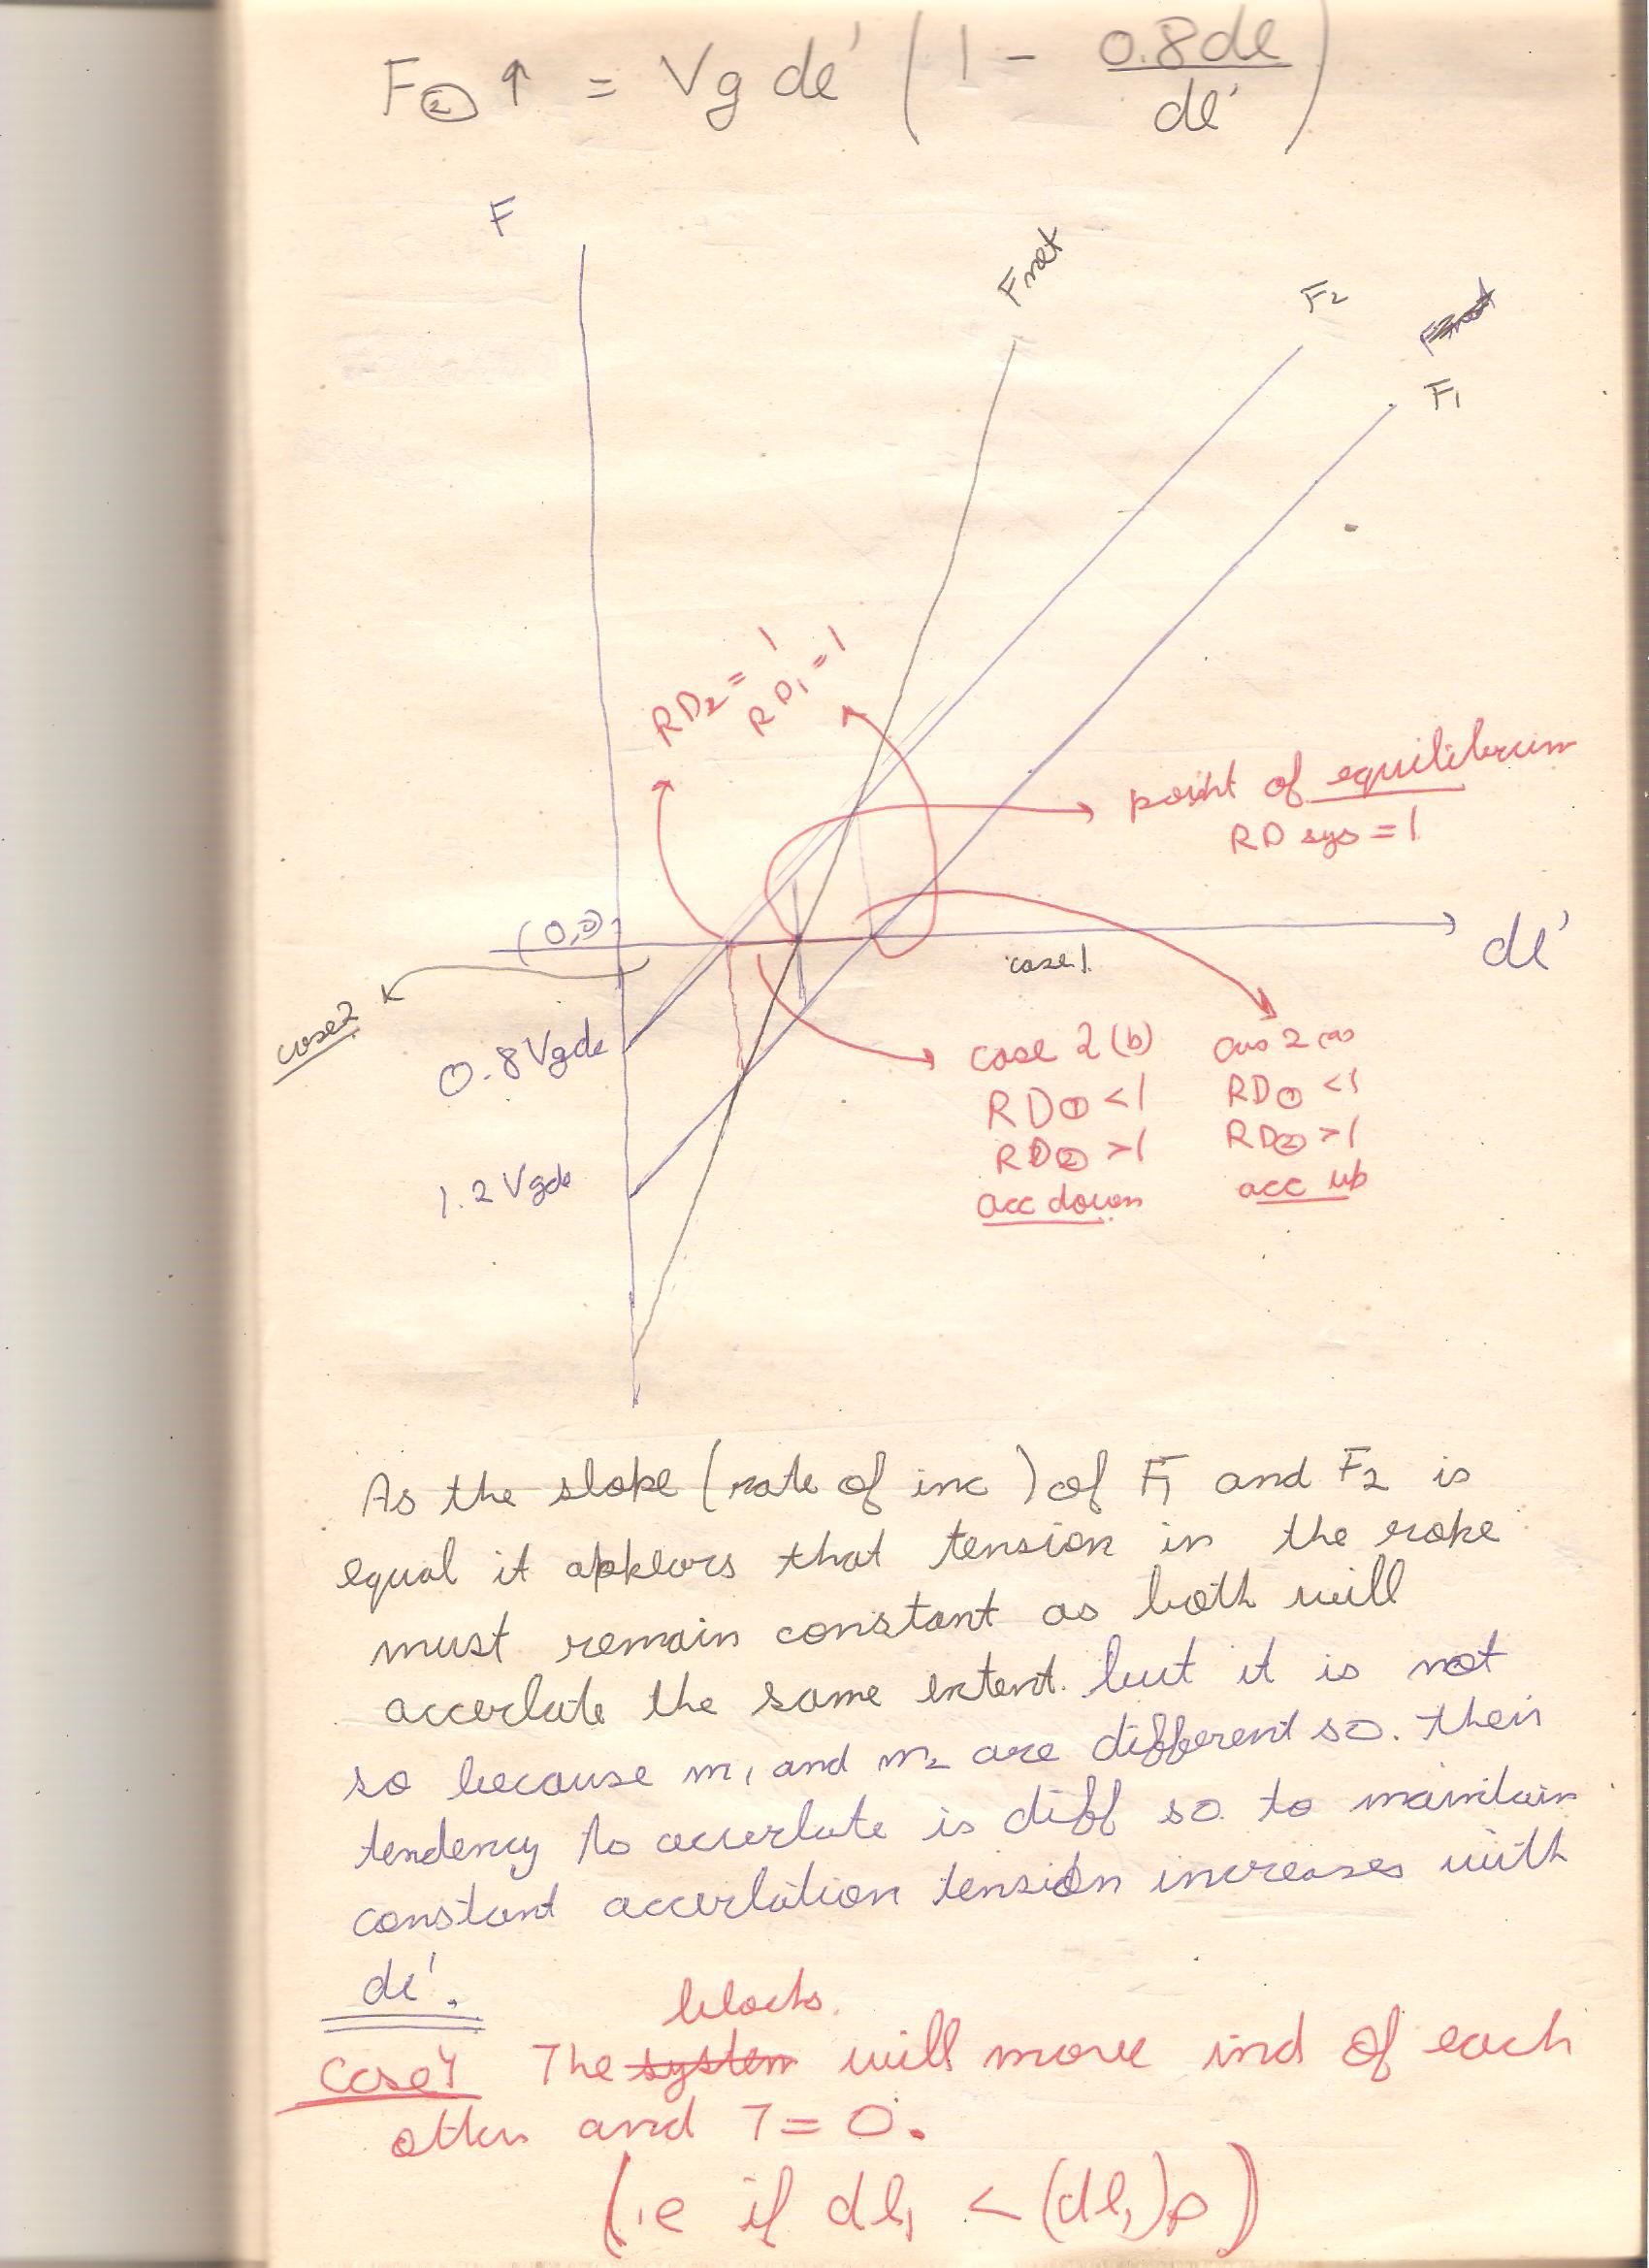 F② ↑ = Vg dl' (1 - 0.8dl/dl')
F
Fnet
F2
F1
RD2 = 1
RD1 = 1
point of equilibrium
RD sys = 1
(0,0)
dl'
case 1
case 2
0.8 Vgdl
1.2 Vgdl
case 2 (b)
RD① <1
RD② >1
acc down
cas 2 (a)
RD① <1
RD② >1
acc up
As the slope (rate of inc ) of F1 and F2 is
equal it appears that tension in the rope
must remain constant as both will
accerlate the same extent. but it is not
so because m1 and m2 are different so. their
tendency to accerlate is diff so to maintain
constant accerlation tension increases with
dl'.
blocks.
Case 4 The system will move ind of each
other and T = 0.
(i.e if dl1 < (dl1)p)